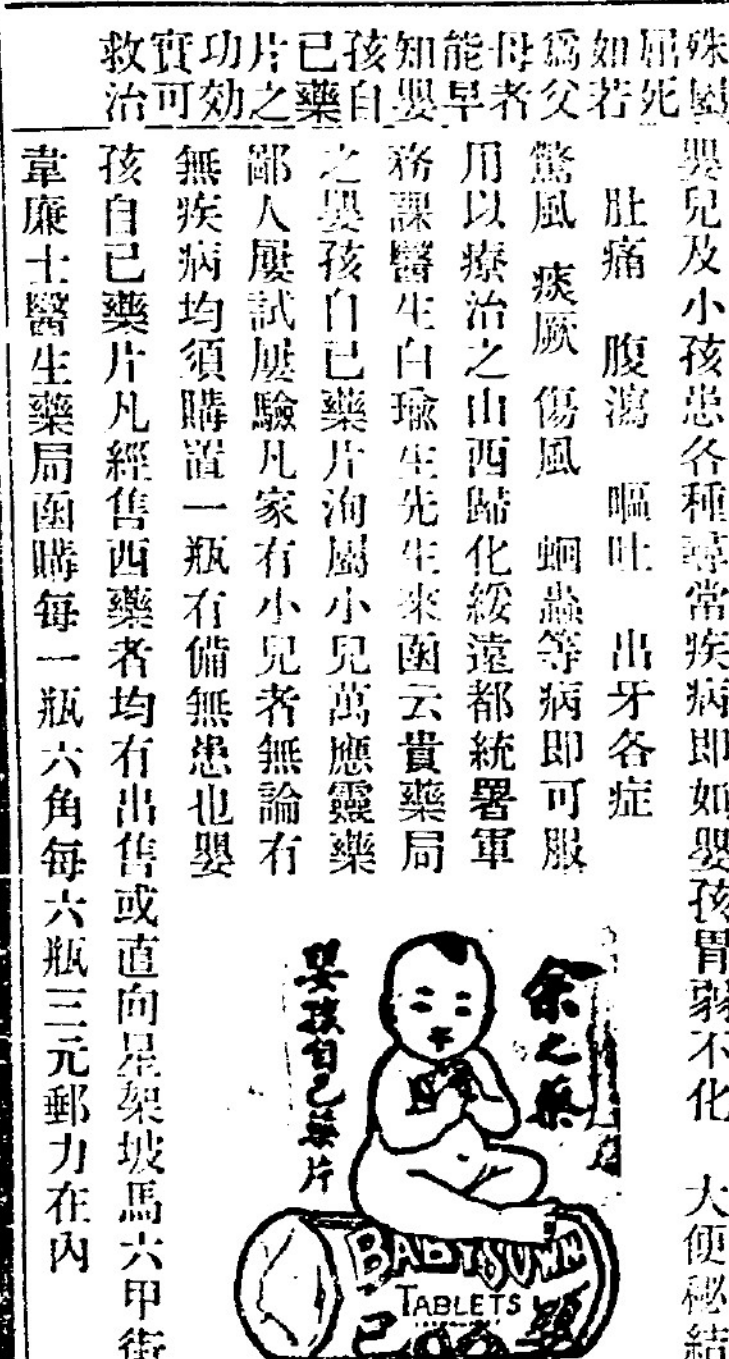 殊屬
屈死
如若
爲父
母者
能早
知嬰
孩自
已藥
片之
功効
實可
救治
嬰兒及小孩患各種尋常疾病即如嬰孩胃弱不化 大便秘結
肚痛 腹瀉 嘔吐 出牙各症
驚風 痰厥 傷風 蛔蟲等病即可服
用以療治之山西歸化綏遠都統署軍
務課醫生白瑜生先生來函云貴藥局
之嬰孩自已藥片洵屬小兒萬應靈藥
鄙人屢試屢驗凡家有小兒者無論有
無疾病均須購置一瓶有備無患也嬰
孩自已藥片凡經售西藥者均有出售或直向星架坡馬六甲街
韋廉士醫生藥局函購每一瓶六角每六瓶三元郵力在內
余之藥
嬰孩自己藥片
BABY'S OWN
TABLETS
己
嬰